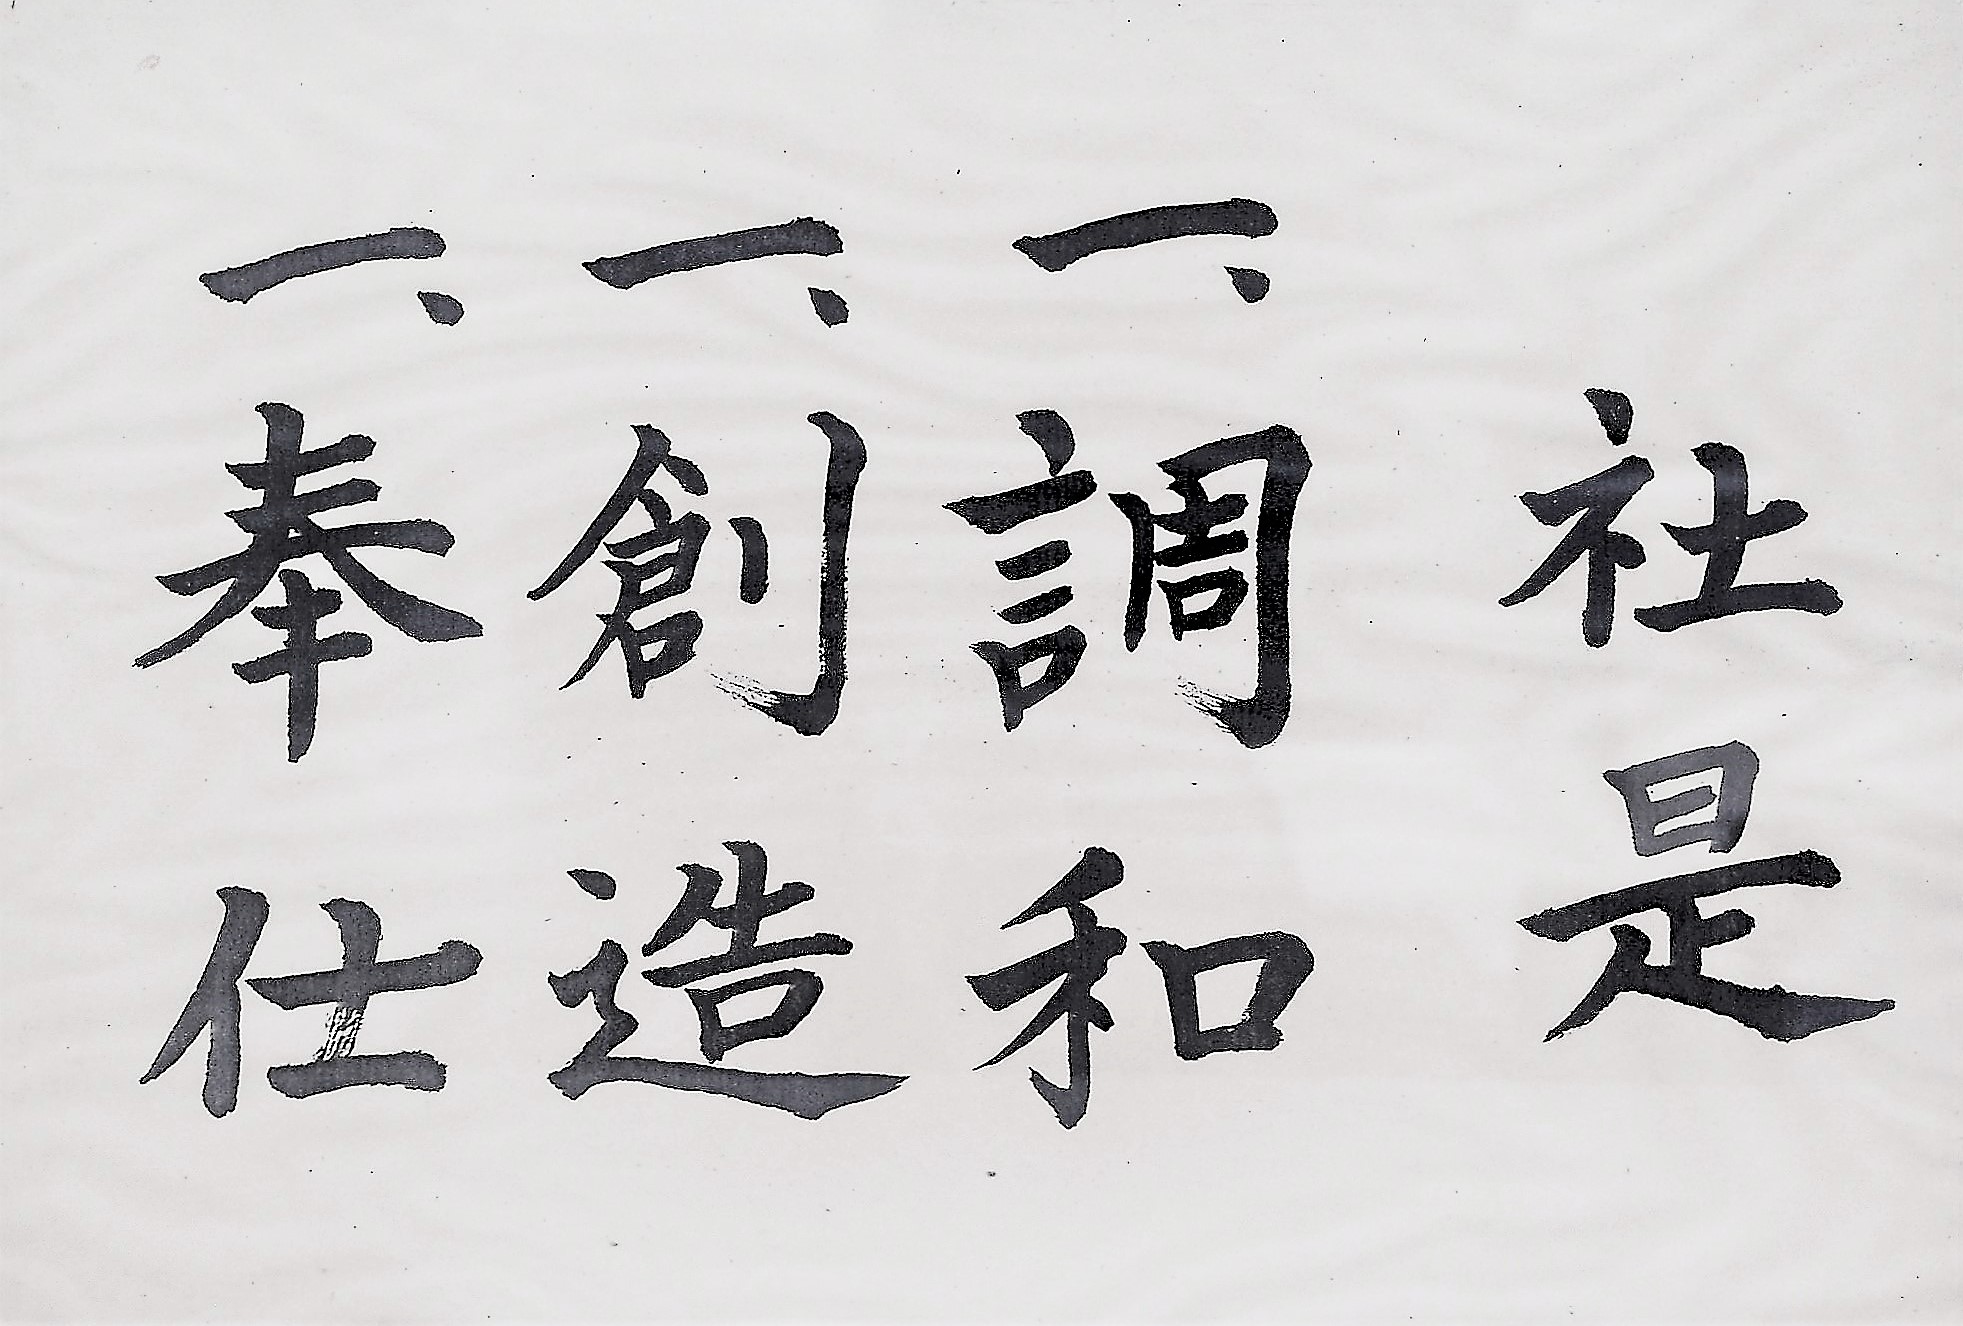 社是
一、調和
一、創造
一、奉仕